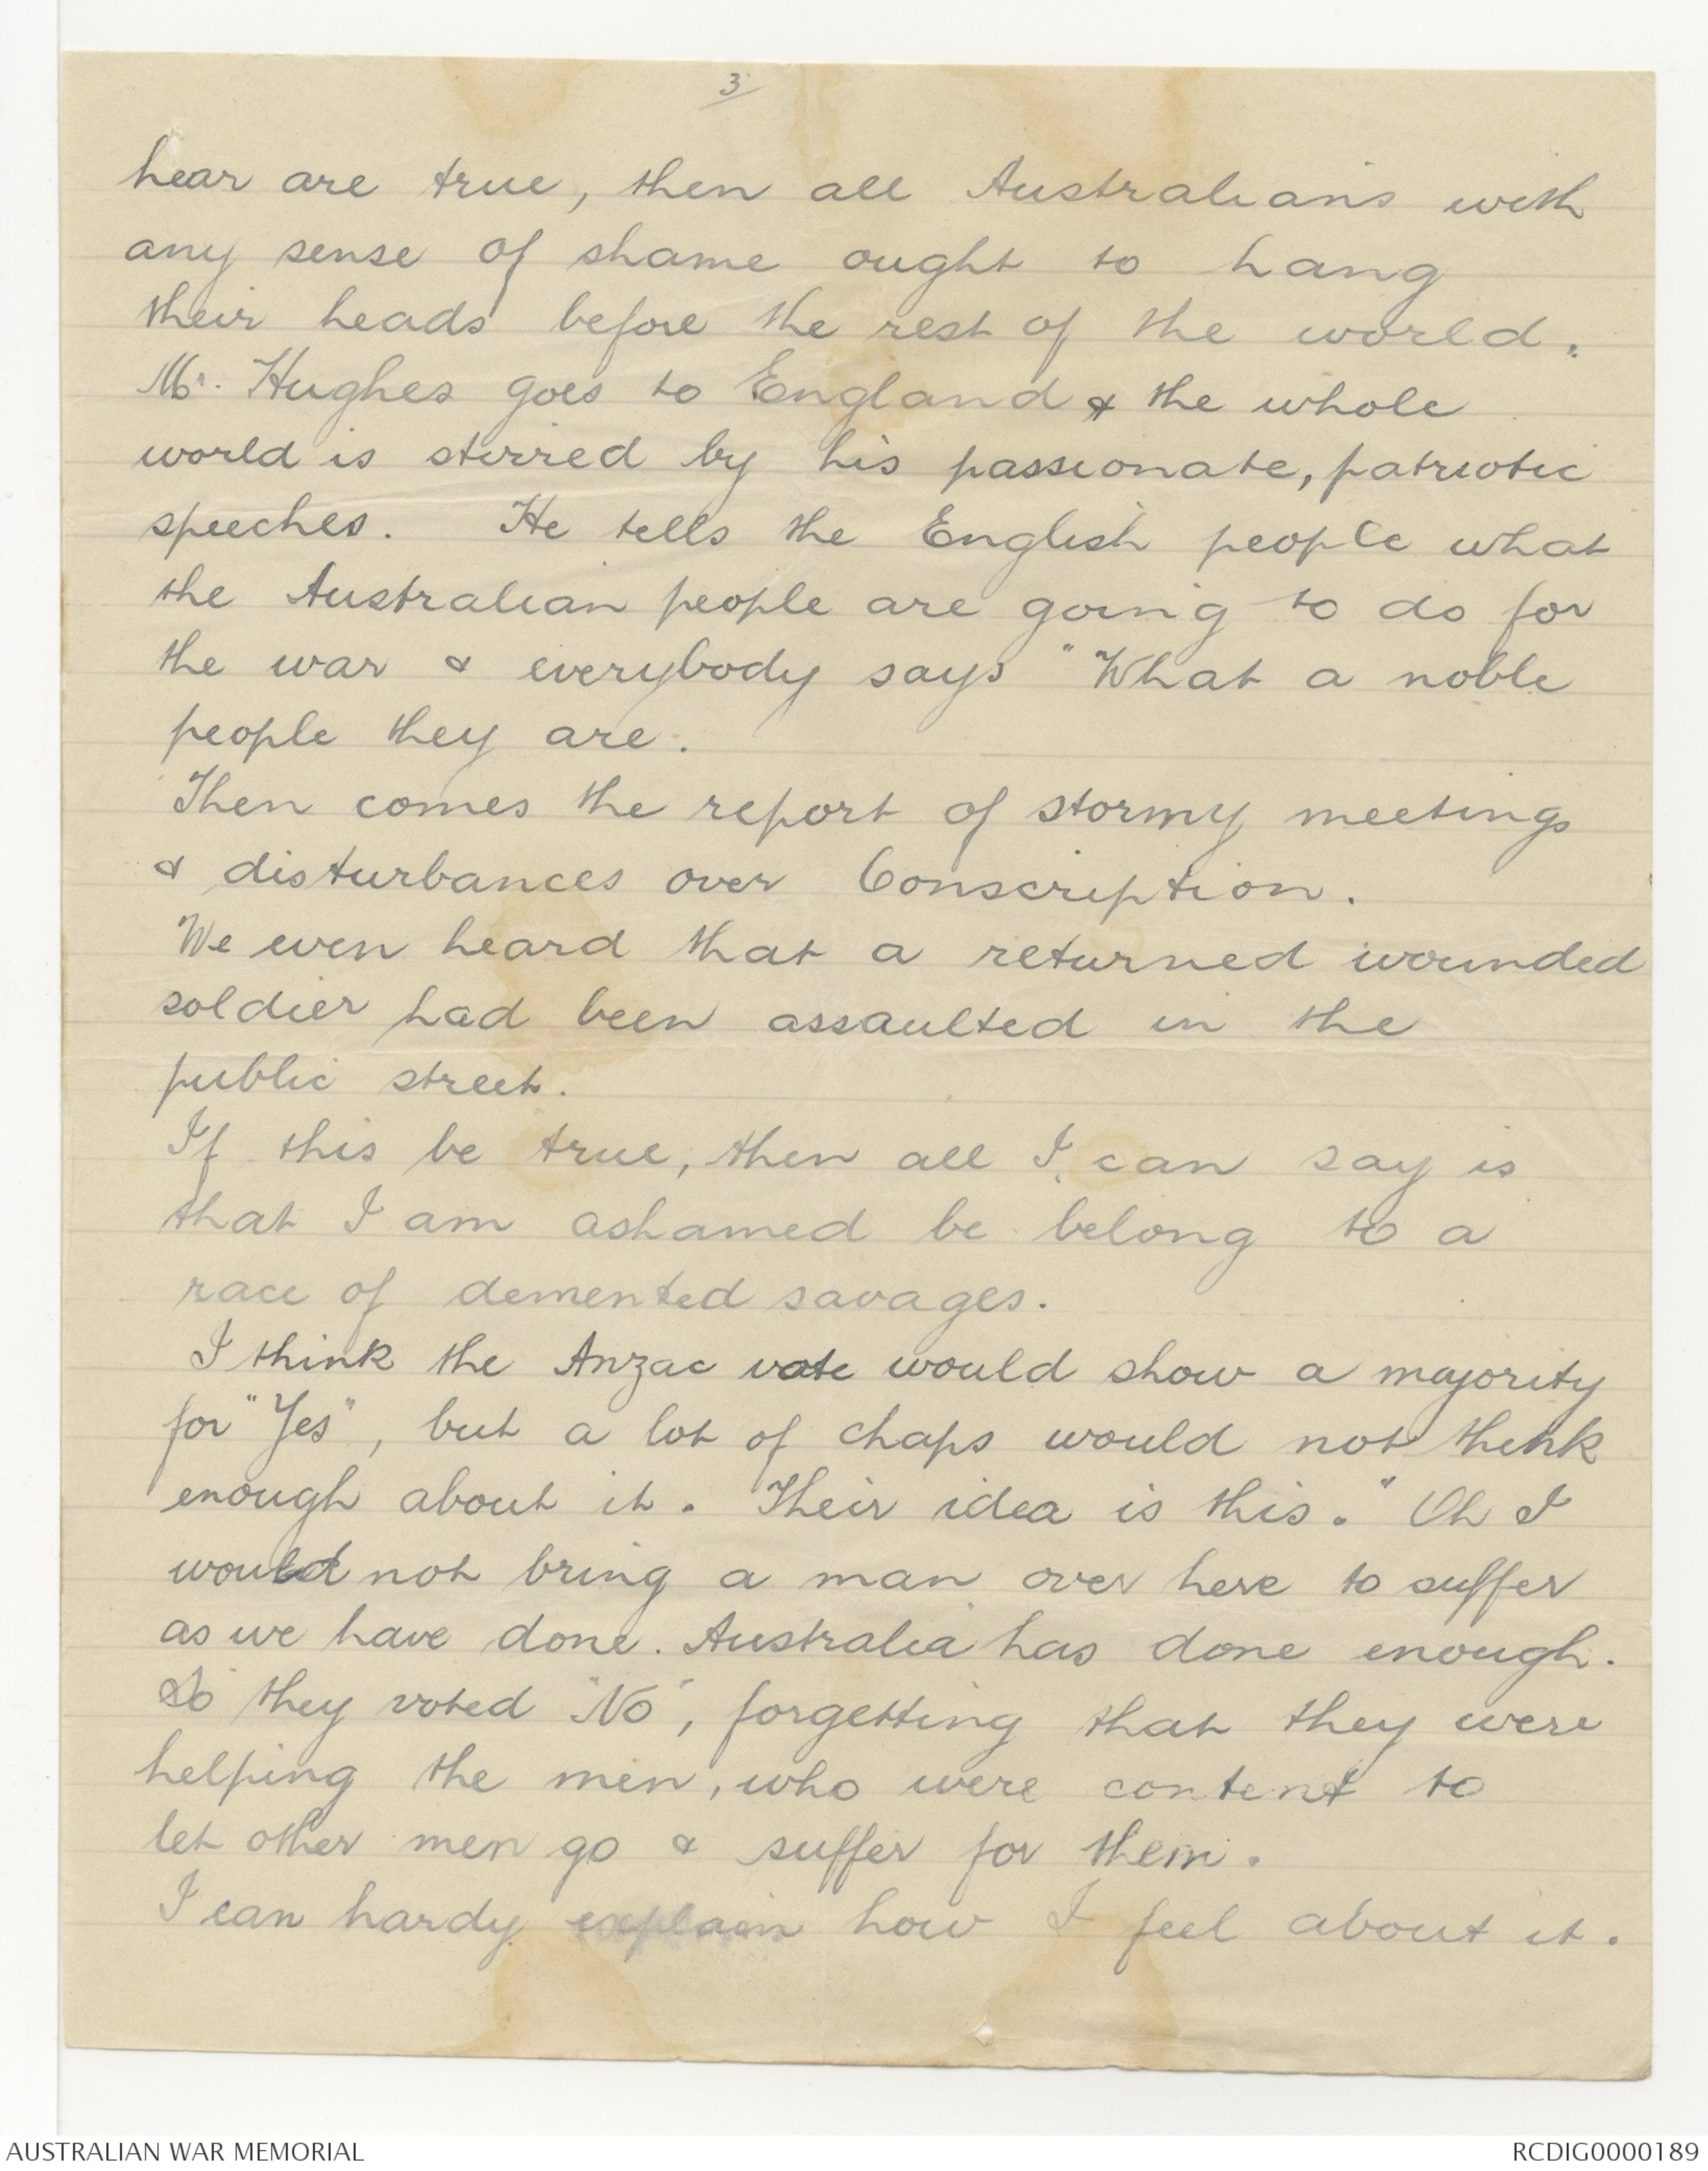 3
hear are true, then all Australians with
any sense of shame ought to hang
their heads before the rest of the world.
Mr. Hughes goes to England & the whole
world is stirred by his passionate, patriotic
speeches. He tells the English people what
the Australian people are going to do for
the war & everybody says "What a noble
people they are.
Then comes the report of stormy meetings
& disturbances over Conscription.
We even heard that a returned wounded
soldier had been assaulted in the
public street.
If this be true, then all I can say is
that I am ashamed be belong to a
race of demented savages.
I think the Anzac vote would show a majority
for "Yes", but a lot of chaps would not think
enough about it. Their idea is this. "Oh I
would not bring a man over here to suffer
as we have done. Australia has done enough.
So they voted "No", forgetting that they were
helping the men, who were content to
let other men go & suffer for them.
I can hardy explain how I feel about it.
AUSTRALIAN WAR MEMORIAL
RCDIG0000189